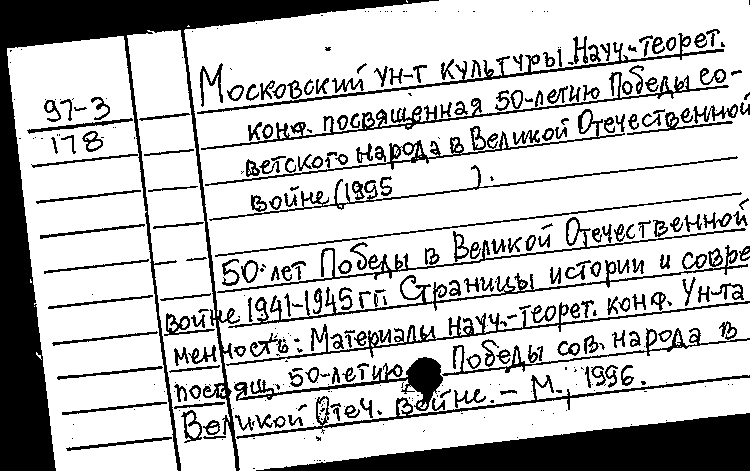 Московский ун-т культуры. Науч.-теорет.
97-3
конф. посвященная 50-летию Победы со-
178
ветского народа в Великой Отечественной
войне (1995 ).
50 лет Победы в Великой Отечественной
войне 1941-1945 гг. Страницы истории и совре
менность: Материалы науч.-теорет. конф. Ун-та
посвящ. 50-летию Победы сов. народа в
Великой Отеч. Войне. - М., 1996.